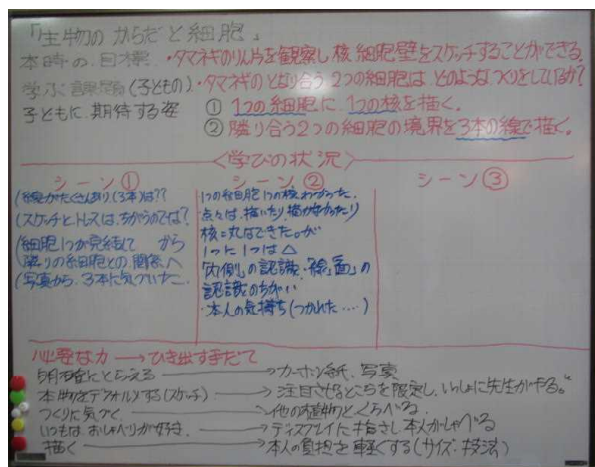 「生物のからだと細胞」
本時の目標 ・タマネギのりん片を観察し核、細胞壁をスケッチすることができる。
学ぶ課題(子どもの)・タマネギのとなり合う2つの細胞は、どのようなつくりをしているか?
子どもに期待する姿 ① 1つの細胞に、1つの核を描く。
② 隣り合う2つの細胞の境界を3本の線で描く。
〈学びの状況〉
シーン①
(線がたくさんあり(3本)は??
(スケッチとトレスは、ちがうのでは?
(細胞1つが完結して から
隣りの細胞との関係へ
(写真から、3本に気づいた。
シーン②
1つの細胞1つの核わかった。
点々は、描いたり描かなかったり
核=丸はできた。が
1つに1つは△
「内側」の認識・「線」「面」の
認識のちがい
・本人の気持ち(つかれた・・・・)
シーン③
必要な力 → ひき出す手だて
明確にとらえる → カーボン紙、写真
本物をデフォルメする(スケッチ) → 注目させるところを限定し、いっしょに先生がやる。
つくりに気づく → 他の植物とくらべる。
いつもは、おしゃべりが好き → ディスプレイに指さし本人がしゃべる
描く → 本人の負担を軽くする(サイズ・技法)